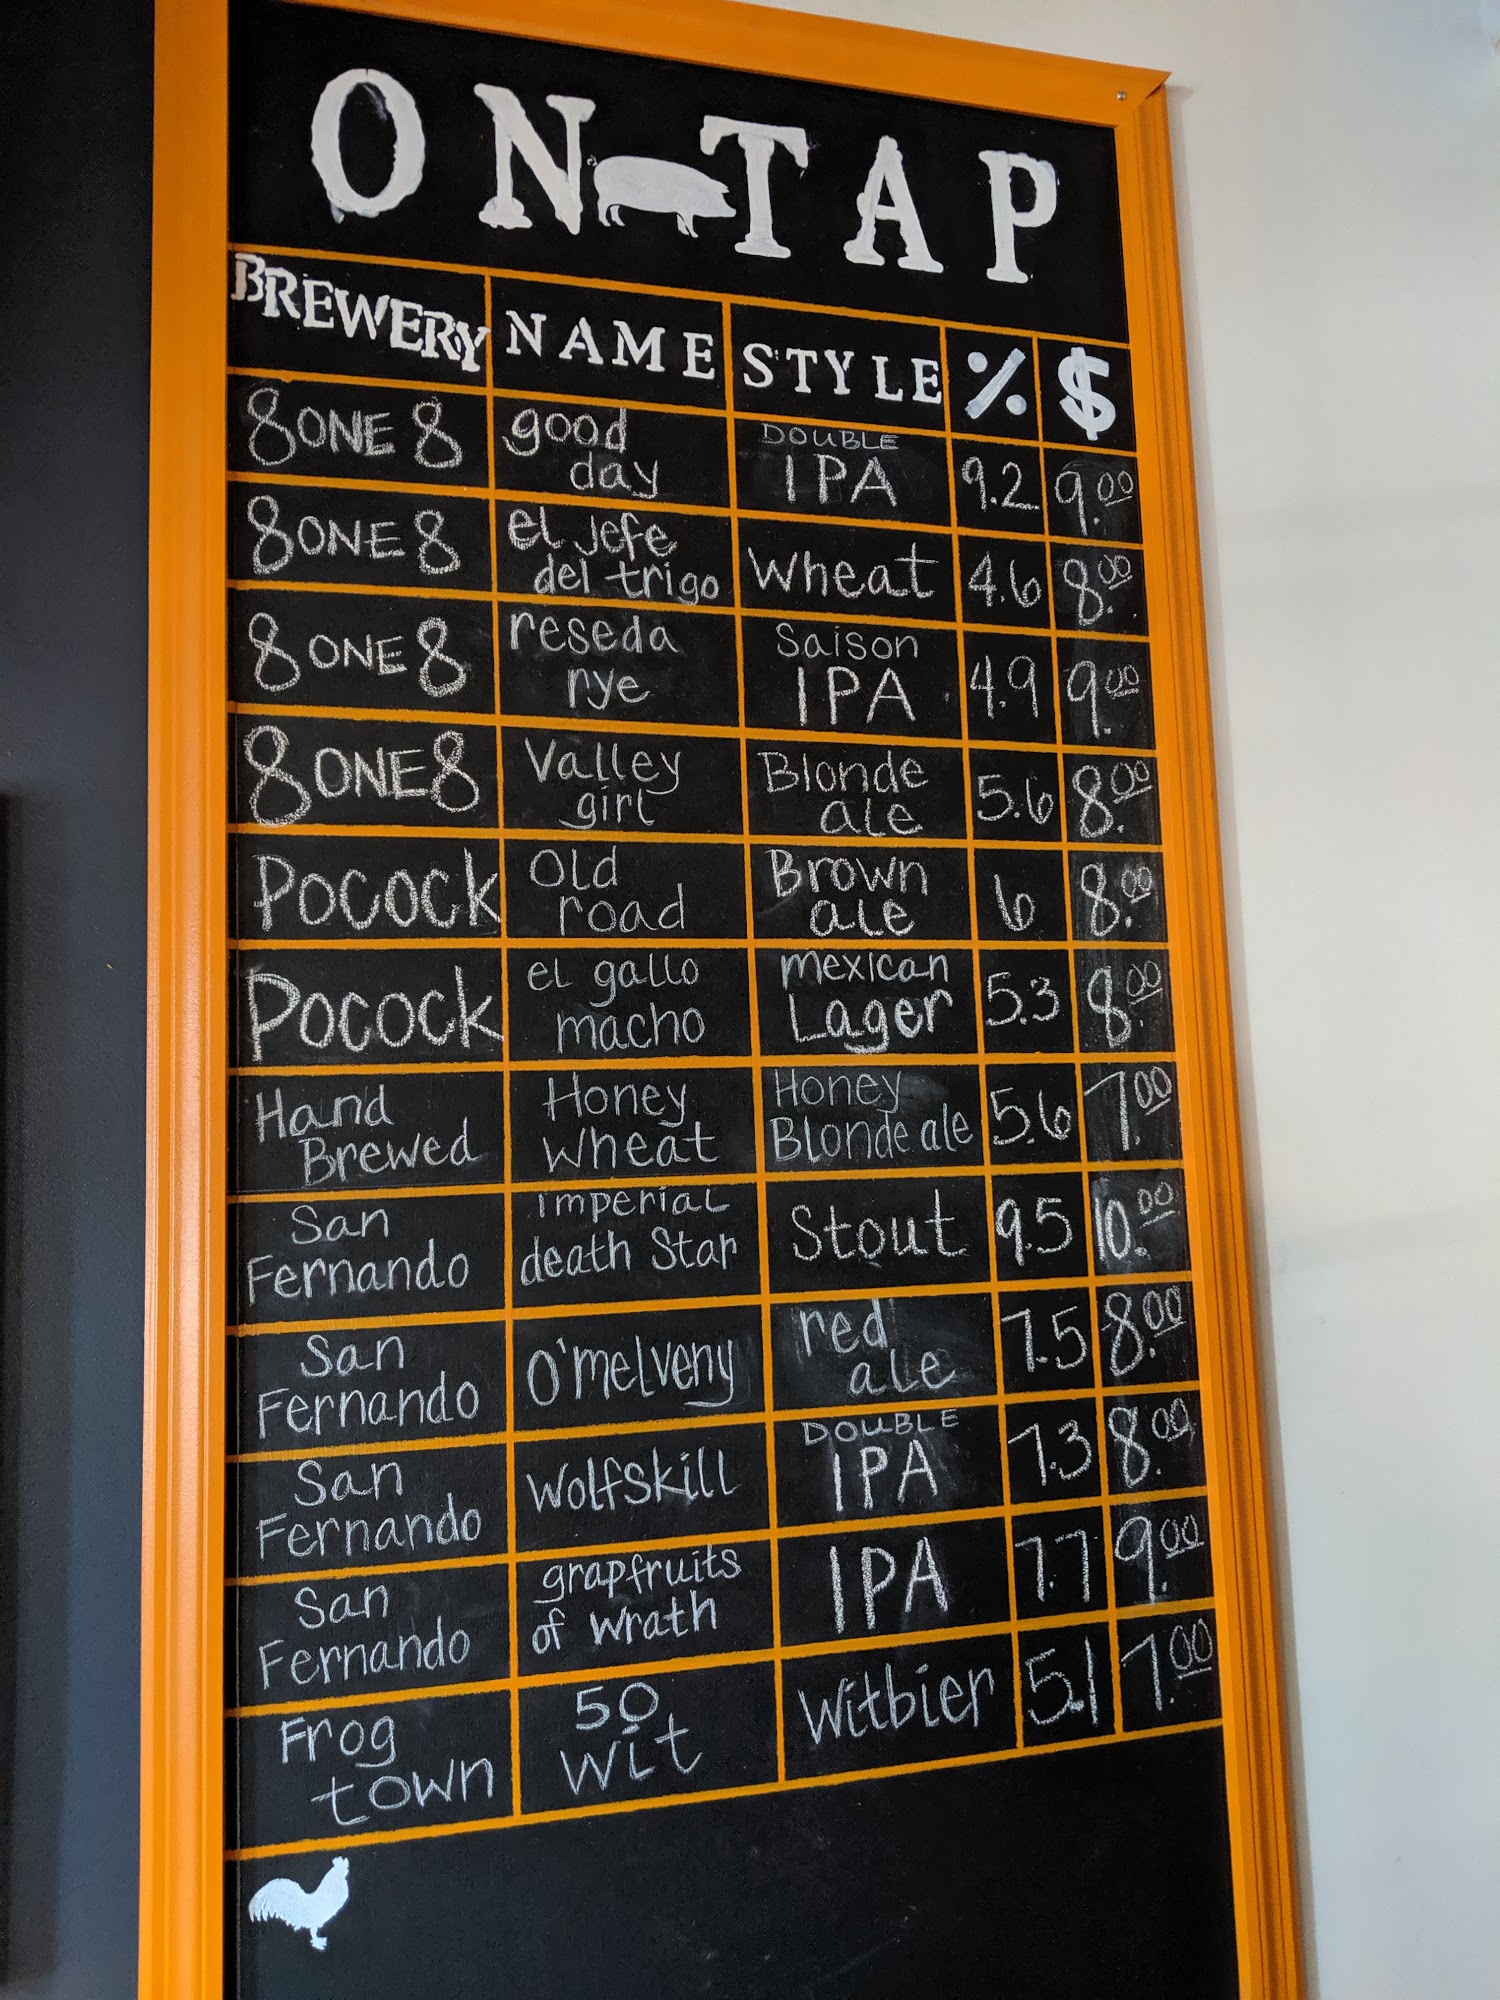 ON TAP
BREWERY NAME STYLE % $
8 ONE 8 good day DOUBLE IPA 9.2 9.00
8 ONE 8 el jefe del trigo Wheat 4.6 8.00
8 ONE 8 reseda rye Saison IPA 4.9 9.00
8 ONE 8 Valley girl Blonde ale 5.6 8.00
Pocock Old road Brown ale 6 8.00
Pocock el gallo macho mexican Lager 5.3 8.00
Hand Brewed Honey wheat Honey Blonde ale 5.6 7.00
San Fernando imperial death Star Stout 9.5 10.00
San Fernando O'melveny red ale 7.5 8.00
San Fernando Wolfskill DOUBLE IPA 7.3 8.00
San Fernando grapfruits of wrath IPA 7.7 9.00
Frog town 50 wit Witbier 5.1 7.00